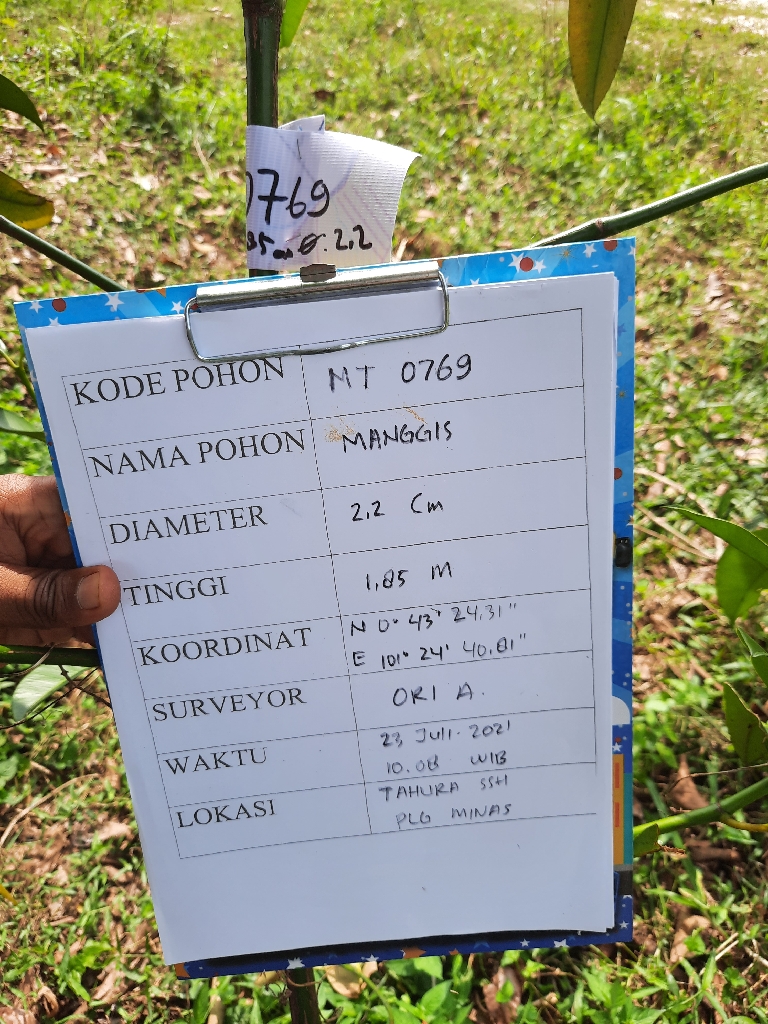 0769
85 cm Ø. 2.2
KODE POHON MT 0769
NAMA POHON MANGGIS
DIAMETER 2.2 Cm
TINGGI 1,85 M
KOORDINAT N 0° 43' 24.31"
E 101° 24' 40.81"
SURVEYOR ORI A.
WAKTU 23 JULI. 2021
10.08 WIB
LOKASI TAHURA SSH
PLG MINAS